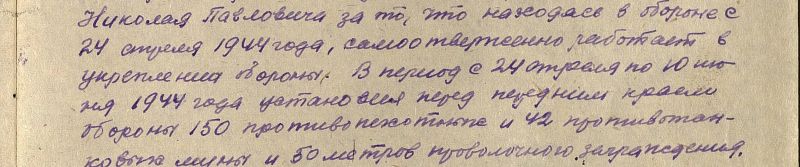 Николая Павловича за то, что находясь в обороне с
24 апреля 1944 года, самоотверженно работает в
укреплении обороны. В период с 24 апреля по 10 ию-
ня 1944 года установил перед передним краем
обороны 150 противопехотных и 42 противотан-
ковых мины и 50 метров проволочного заграждения.